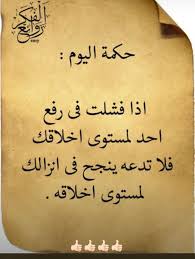 روائع الفكر
حكمة اليوم :
اذا فشلت فى رفع
احد لمستوى اخلاقك
فلا تدعه ينجح فى انزالك
لمستوى اخلاقه .
👍🏻👍🏻👍🏻👍🏻